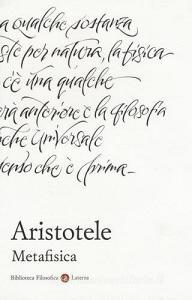 a qualche sostanza
s'è per natura, la fisica
c'è una qualche
erà anteriore e la filosofia
nche universale
ento che è prima_
Aristotele
Metafisica
Biblioteca Filosofica Laterza